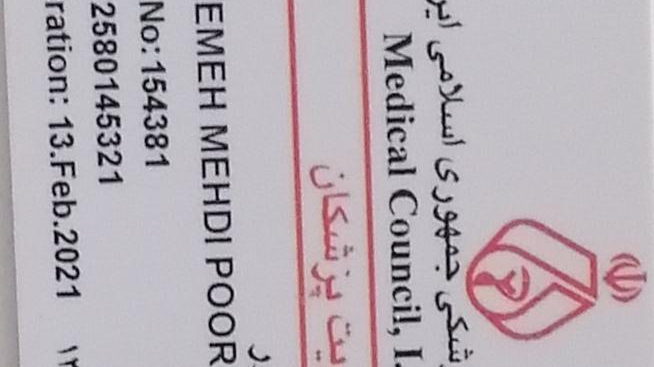 شکی جمهوری اسلامی ایر
Medical Council, I.
یت پزشکان
EMEH MEHDI POOR
No:154381
2580145321
ration: 13.Feb.2021